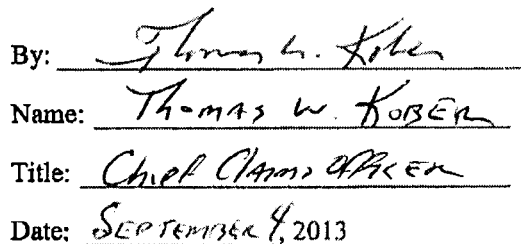 By: Thomas W. Kober
Name: Thomas W. Kober
Title: Chief Claims Officer
Date: September 4, 2013